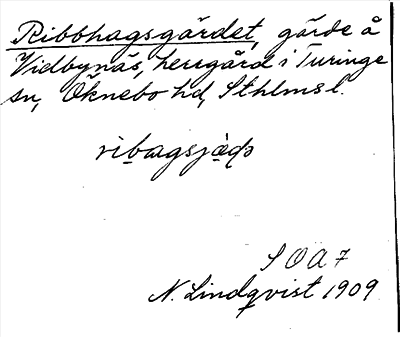 Ribbhagsgärdet, gärde å
Vidbynäs, herrgård i Turinge
sn, Öknebo hd, Sthlms l.
ribagsjæḍə
S O A 7
N. Lindqvist 1909